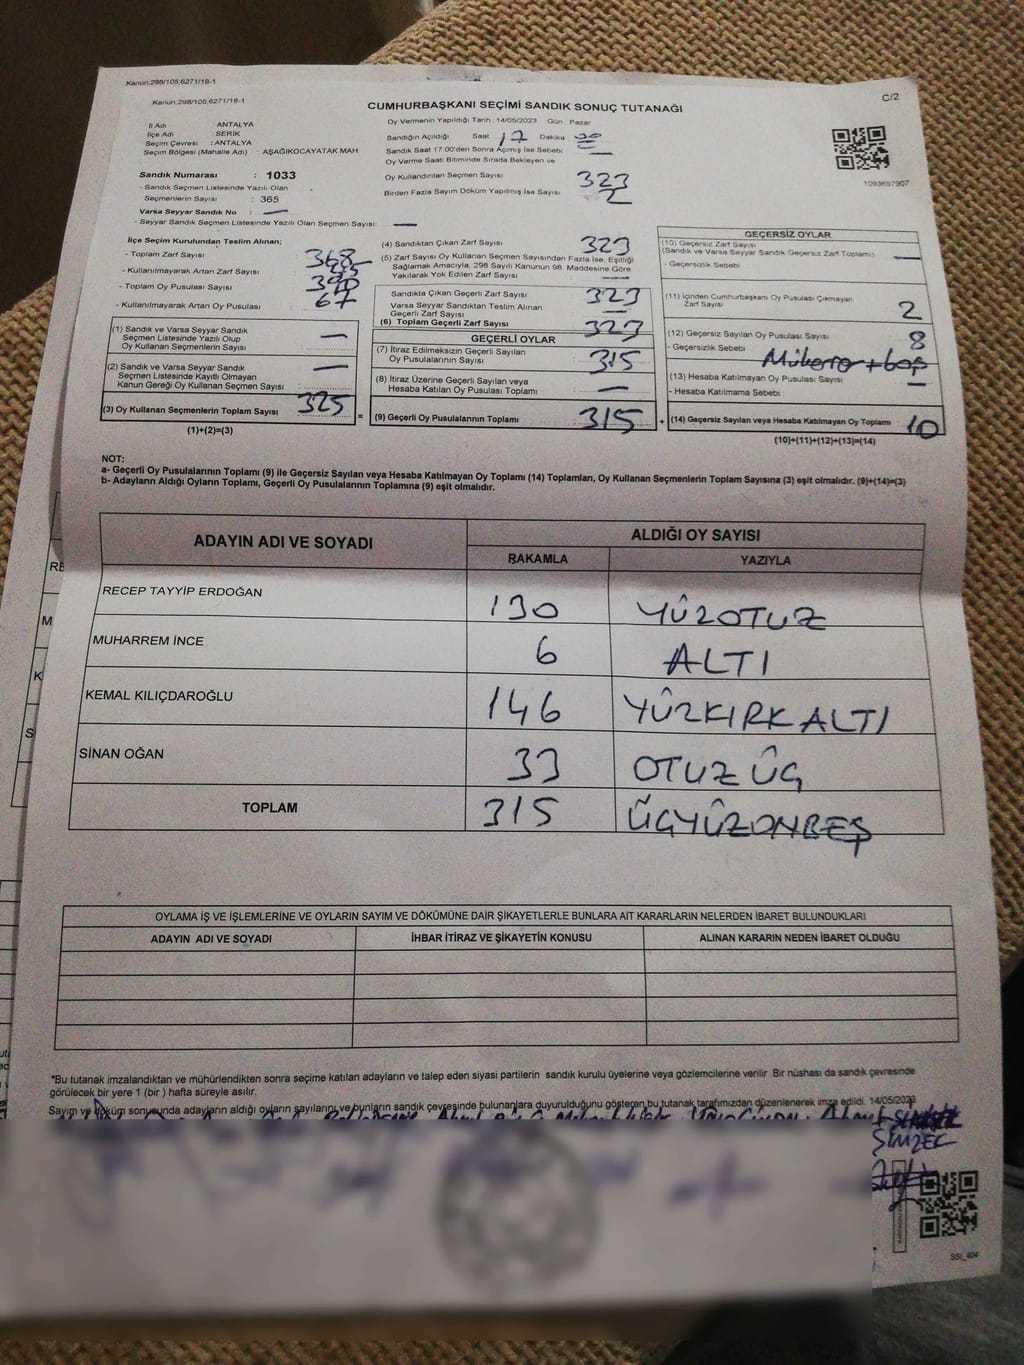 Kanun:298/105;6271/18-1
Kanun:298/105;6271/18-1
C/2
CUMHURBAŞKANI SEÇİMİ SANDIK SONUÇ TUTANAĞI
İl Adı : ANTALYA
İlçe Adı : SERİK
Seçim Çevresi : ANTALYA
Seçim Bölgesi (Mahalle Adı) : AŞAĞIKOCAYATAK MAH.
Sandık Numarası : 1033
- Sandık Seçmen Listesinde Yazılı Olan
Seçmenlerin Sayısı : 365
Varsa Seyyar Sandık No : —
- Seyyar Sandık Seçmen Listesinde Yazılı Olan Seçmen Sayısı: —
Oy Vermenin Yapıldığı Tarih : 14/05/2023 Gün : Pazar
Sandığın Açıldığı Saat 17 Dakika
Sandık Saat 17.00'den Sonra Açılmış İse Sebebi —
Oy Verme Saati Bitiminde Sırada Bekleyen ve
Oy Kullandırılan Seçmen Sayısı 323
Birden Fazla Sayım Döküm Yapılmış İse Sayısı 2
1093697907
İlçe Seçim Kurulundan Teslim Alınan;
- Toplam Zarf Sayısı 368
- Kullanılmayarak Artan Zarf Sayısı
- Toplam Oy Pusulası Sayısı
- Kullanılmayarak Artan Oy Pusulası 67
(1) Sandık ve Varsa Seyyar Sandık
Seçmen Listesinde Yazılı Olup
Oy Kullanan Seçmenlerin Sayısı —
(2) Sandık ve Varsa Seyyar Sandık
Seçmen Listesinde Kayıtlı Olmayan
Kanun Gereği Oy Kullanan Seçmen Sayısı —
(3) Oy Kullanan Seçmenlerin Toplam Sayısı : 325
(1)+(2)=(3)
(4) Sandıktan Çıkan Zarf Sayısı 323
(5) Zarf Sayısı Oy Kullanan Seçmen Sayısından Fazla İse, Eşitliği
Sağlamak Amacıyla, 298 Sayılı Kanunun 98. Maddesine Göre
Yakılarak Yok Edilen Zarf Sayısı —
Sandıkta Çıkan Geçerli Zarf Sayısı 323
Varsa Seyyar Sandıktan Teslim Alınan
Geçerli Zarf Sayısı —
(6) Toplam Geçerli Zarf Sayısı 323
GEÇERLİ OYLAR
(7) İtiraz Edilmeksizin Geçerli Sayılan
Oy Pusulalarının Sayısı 315
(8) İtiraz Üzerine Geçerli Sayılan veya
Hesaba Katılan Oy Pusulası Toplamı —
= (9) Geçerli Oy Pusulalarının Toplamı : 315
GEÇERSİZ OYLAR
(10) Geçersiz Zarf Sayısı
(Sandık ve Varsa Seyyar Sandık Geçersiz Zarf Toplamı) —
- Geçersizlik Sebebi
(11) İçinden Cumhurbaşkanı Oy Pusulası Çıkmayan
Zarf Sayısı 2
(12) Geçersiz Sayılan Oy Pusulası Sayısı 8
- Geçersizlik Sebebi
(13) Hesaba Katılmayan Oy Pusulası Sayısı —
- Hesaba Katılmama Sebebi
+ (14) Geçersiz Sayılan veya Hesaba Katılmayan Oy Toplamı : 10
(10)+(11)+(12)+(13)=(14)
NOT:
a- Geçerli Oy Pusulalarının Toplamı (9) ile Geçersiz Sayılan veya Hesaba Katılmayan Oy Toplamı (14) Toplamları, Oy Kullanan Seçmenlerin Toplam Sayısına (3) eşit olmalıdır. (9)+(14)=(3)
b- Adayların Aldığı Oyların Toplamı, Geçerli Oy Pusulalarının Toplamına (9) eşit olmalıdır.
ADAYIN ADI VE SOYADI ALDIĞI OY SAYISI
RAKAMLA YAZIYLA
RECEP TAYYİP ERDOĞAN 130 YÜZOTUZ
MUHARREM İNCE 6 ALTI
KEMAL KILIÇDAROĞLU 146 YÜZKIRKALTI
SİNAN OĞAN 33 OTUZ ÜÇ
TOPLAM 315 ÜÇYÜZONBEŞ
OYLAMA İŞ VE İŞLEMLERİNE VE OYLARIN SAYIM VE DÖKÜMÜNE DAİR ŞİKAYETLERLE BUNLARA AİT KARARLARIN NELERDEN İBARET BULUNDUKLARI
ADAYIN ADI VE SOYADI İHBAR İTİRAZ VE ŞİKAYETİN KONUSU ALINAN KARARIN NEDEN İBARET OLDUĞU
*Bu tutanak imzalandıktan ve mühürlendikten sonra seçime katılan adayların ve talep eden siyasi partilerin sandık kurulu üyelerine veya gözlemcilerine verilir. Bir nüshası da sandık çevresinde
görülecek bir yere 1 (bir ) hafta süreyle asılır.
Sayım ve döküm sonusunda adayların aldığı oyların sayılarını ve bunların sandık çevresinde bulunanlara duyurulduğunu gösteren bu tutanak tarafımızdan düzenlenerek imza edildi. 14/05/2023
SSI_404